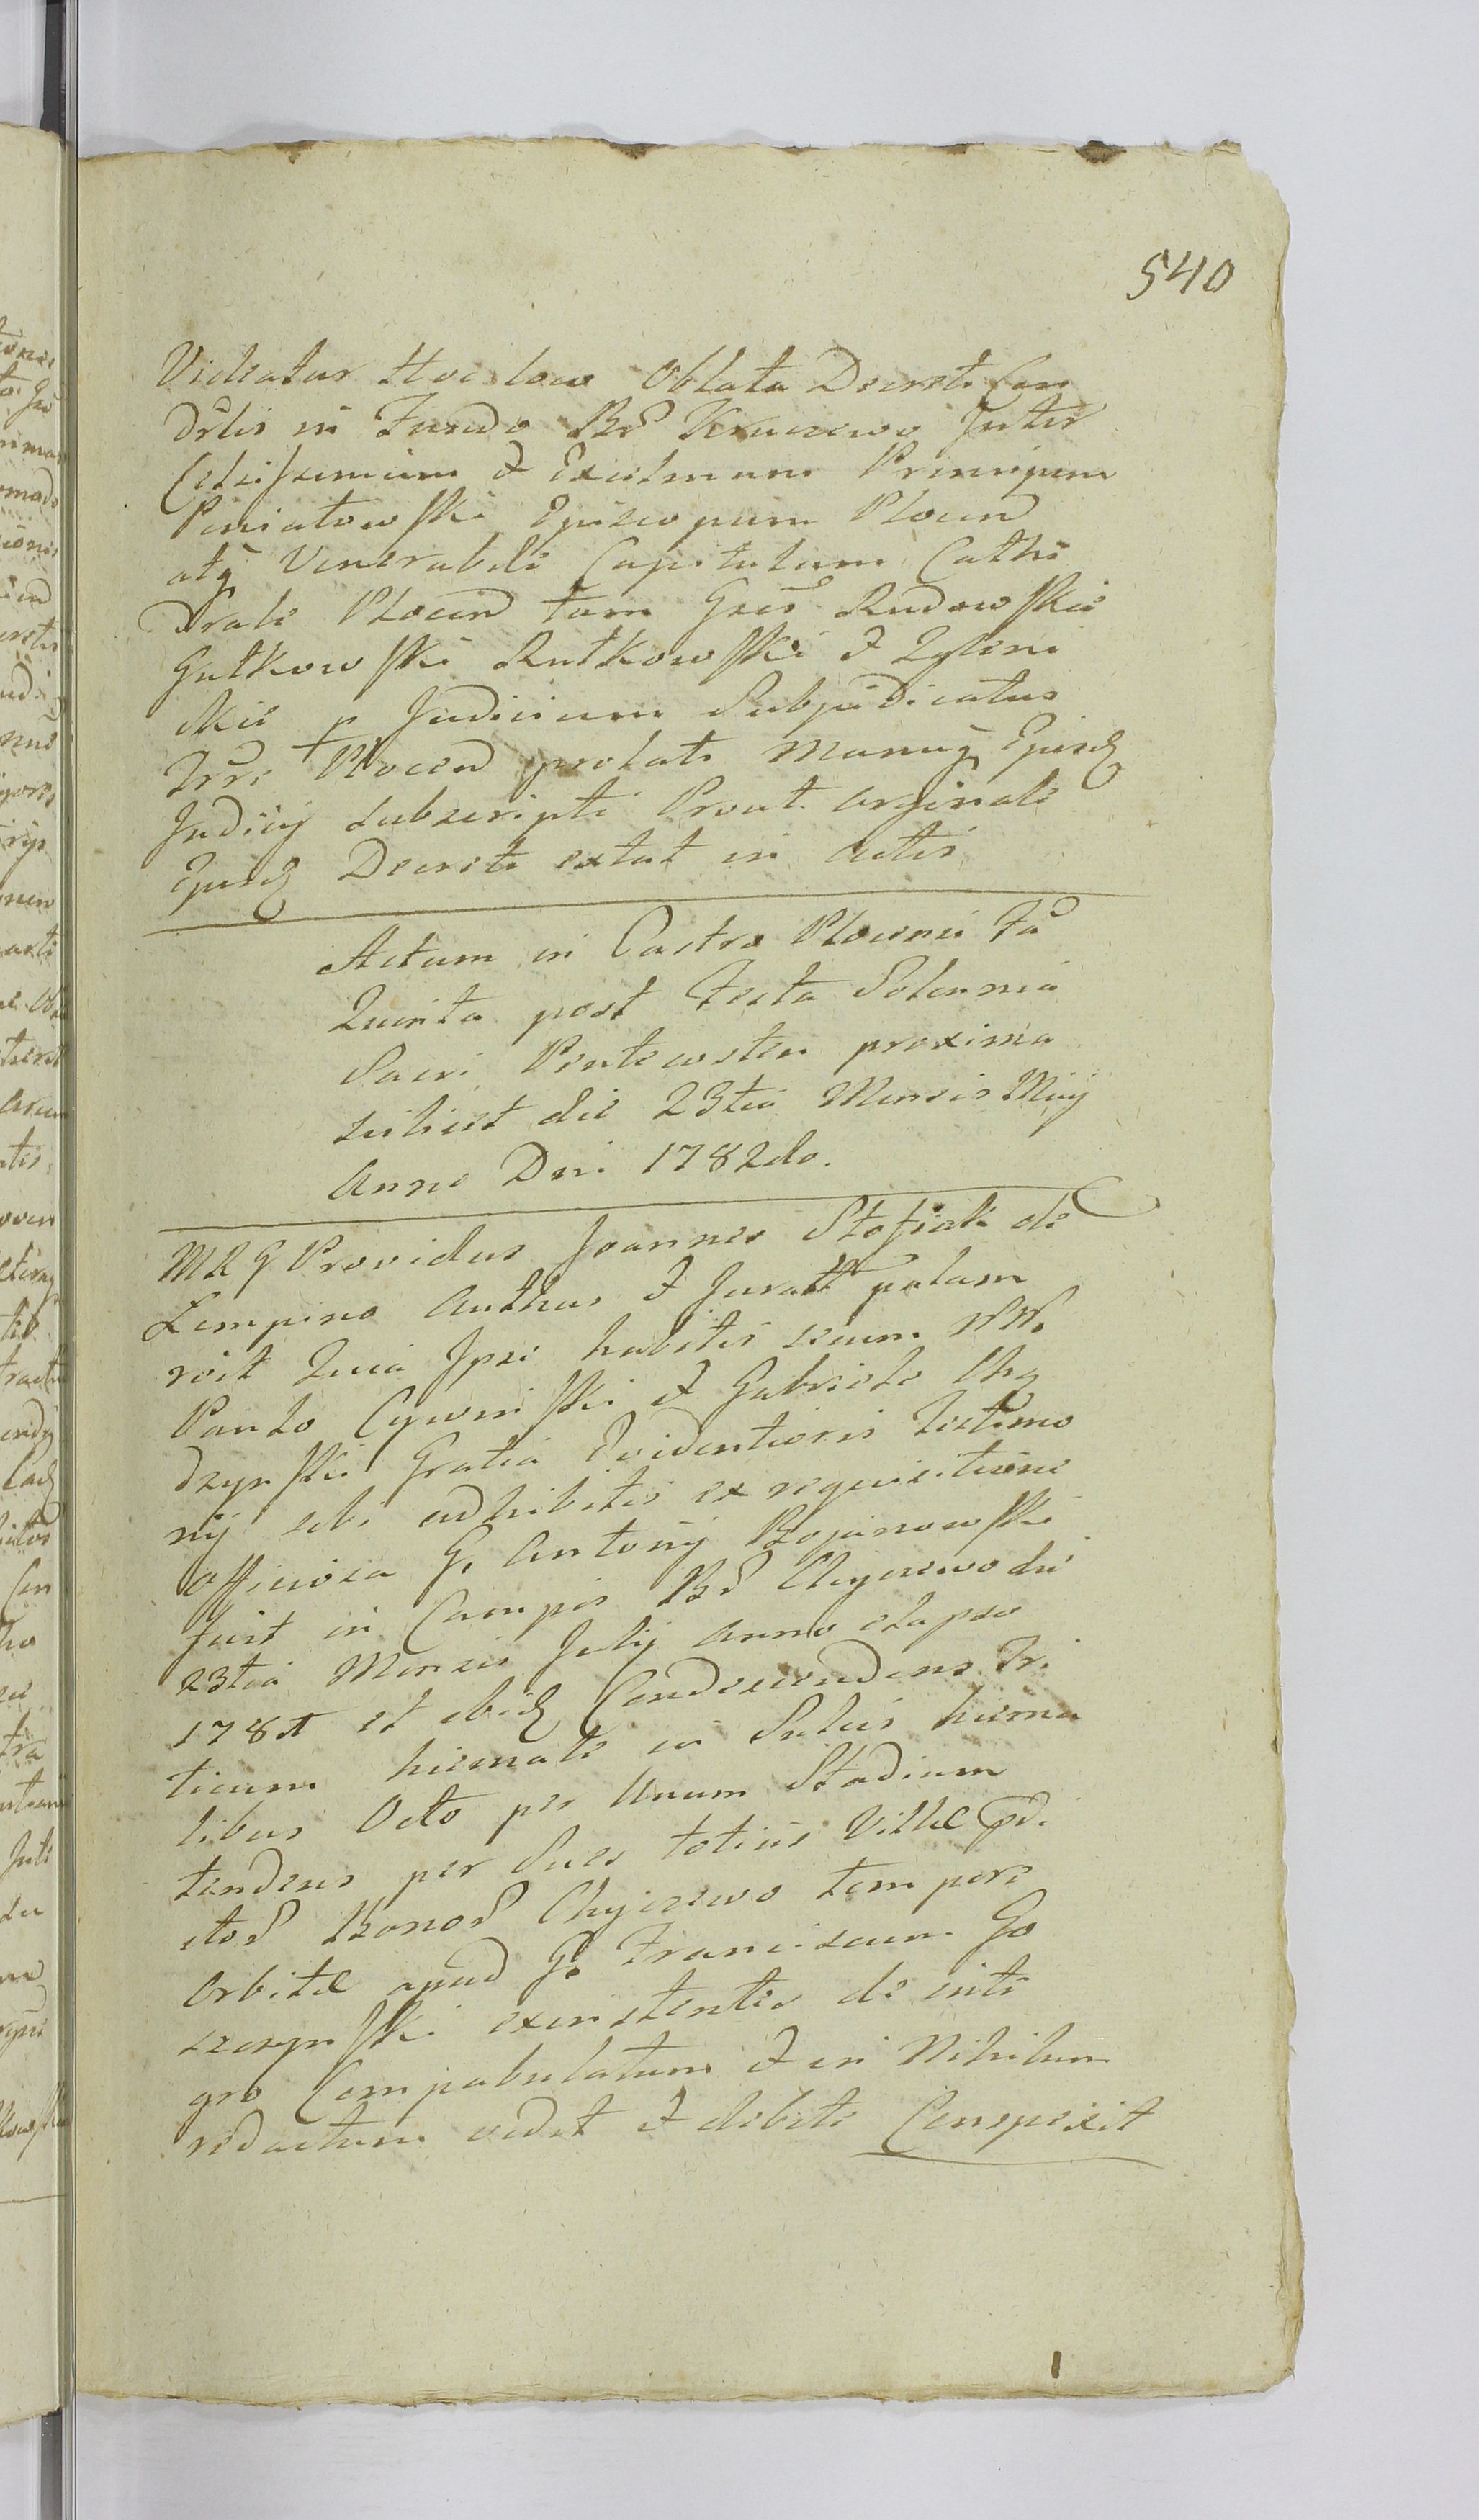 540
Videatur Hoc loco Oblata Decreti Con
drlis in Fundo Bd Kruczewo Inter
Celsissimum & Excelmum Principem
Poniatowski Episcopum Plocen
atq Venerabile Capitulum Cathe
drale Plocen tum Gsos Rudowskie
Gutkowski Rutkowski &
skie p Judicium Subjudicatus
Trri Plocen prolati manuq Ejusd
Judicij subscripti Prout orginale
Ejusd Decreti extat in Actis
Actum in Castro Plocensi Fa
Quinta post Festa Solennia
Sacri Pentecostes proxima
scilicet die 23tia Mensis Maij
Anno Dni 1782do.
MRG Providus Joannes Stofiak de
Lempino Authus & Juratt palam
roit Quia Ipse habitis secum NN.
Paulo Cywinski & Gabriele Chy
dzynski Gratia Evidentioris Testimo
nij sibi adhibitis ex requisitione
officiosa G. Antonij Bojanowski
fuit in Campis Bd Chyczewo die
23tia Mensis Julij Anno elapso
1781 et ibid Condescendens Tri
ticum hiemale in Sulcis hiema
libus Octo per Unum Stadium
tendens per Sues totius Villæ pd.
ctod Bonod Chyczewo tempore
orbitæ apud G. Franciscum Go
szczynski existentis de inte
gro Compabulatum & in Nihilum
redactum vidit & debite Conspexit